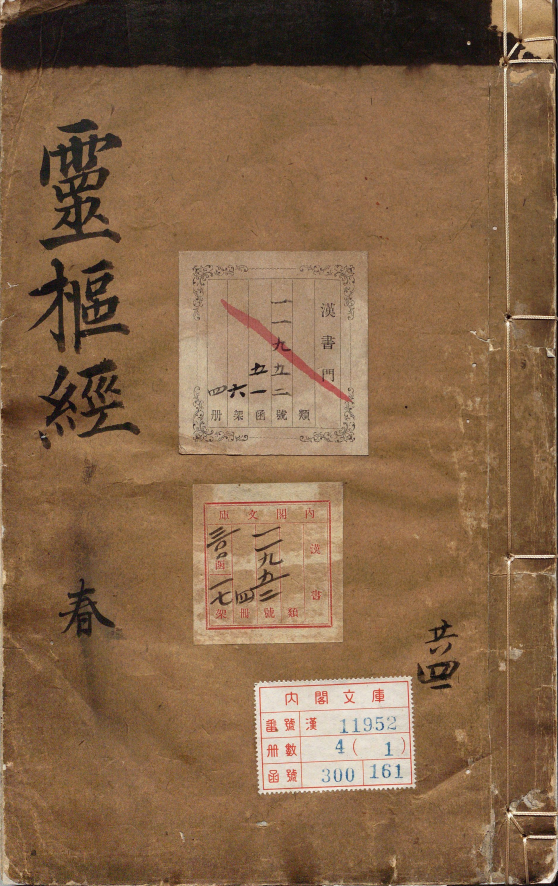 靈樞經
春
共四
漢書門
類
一一九五二號
五一函
六架
四册
内閣文庫
漢書
類
一一九五二號
四冊
三〇〇函
架
内閣文庫
番號 漢 11952
册數 4 ( 1 )
函號 300 161